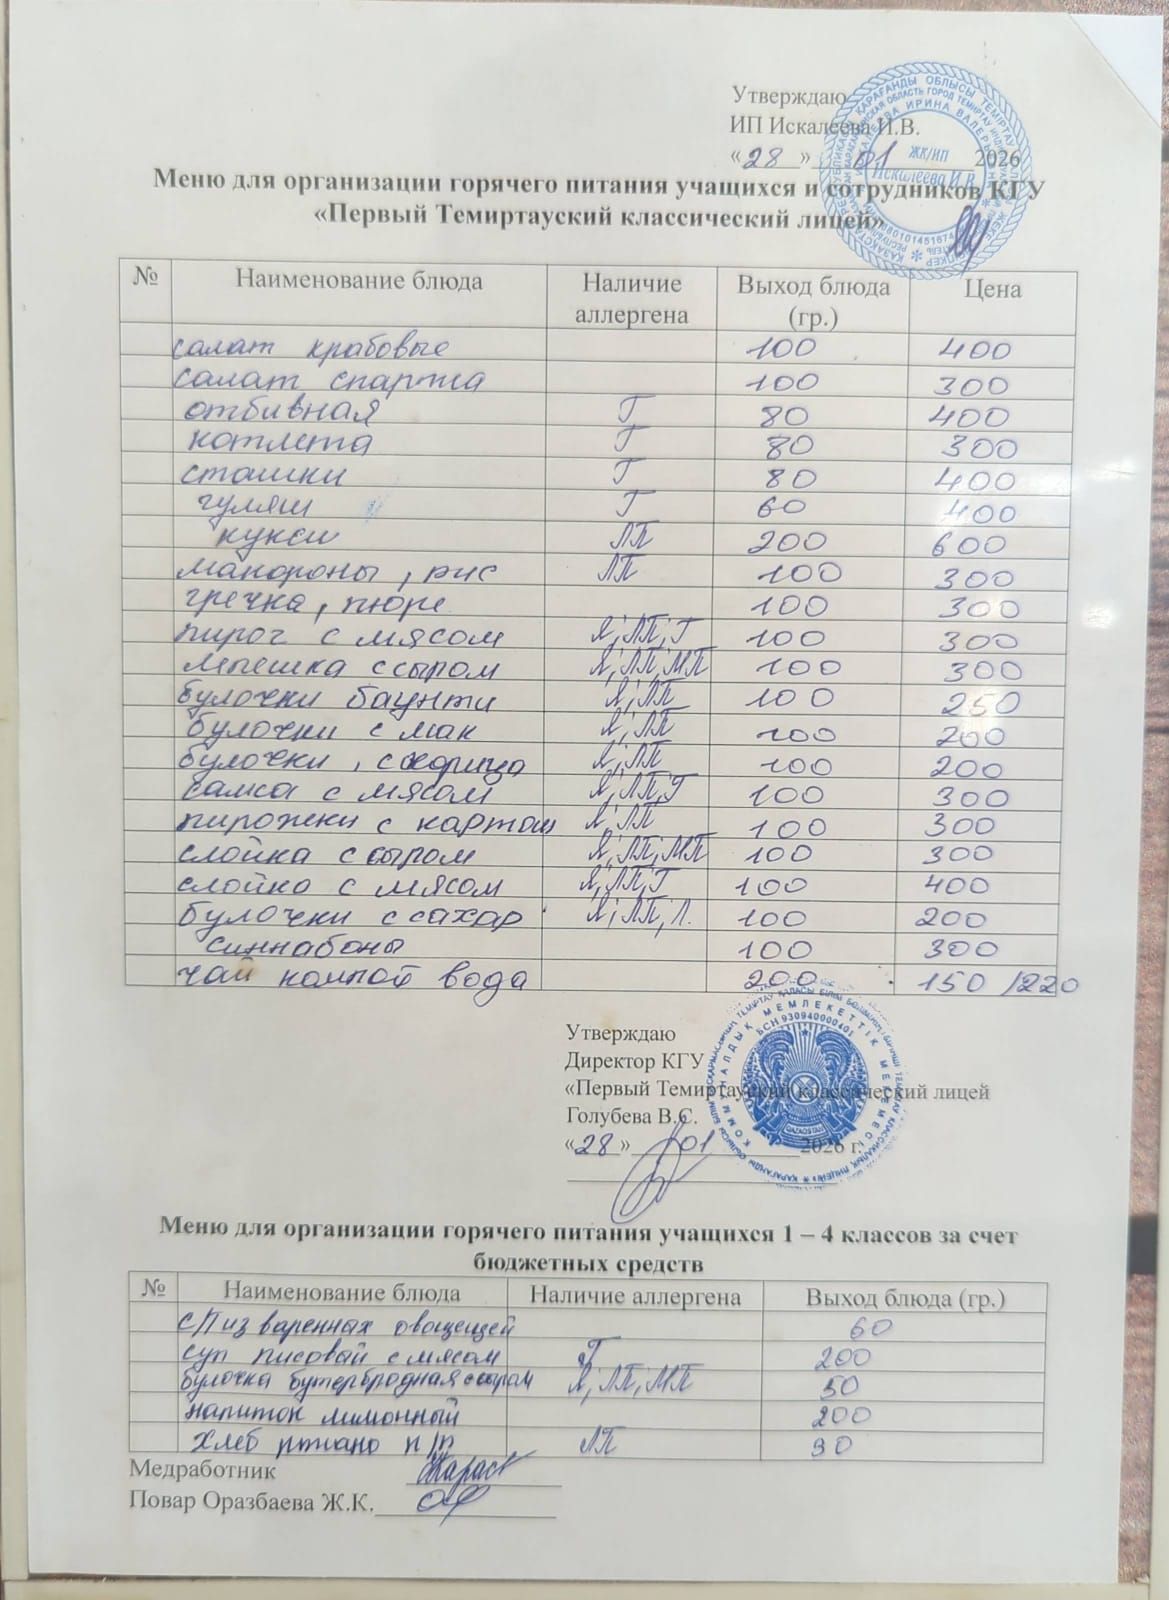 Утверждаю
ИП Искалеева И.В.
«28» 01 2026
ЖК/ИП
Искалеева И.В.
Меню для организации горячего питания учащихся и сотрудников КГУ
«Первый Темиртауский классический лицей»
№ Наименование блюда Наличие аллергена Выход блюда (гр.) Цена
салат крабовые 100 400
салат спарта 100 300
отбивная Г 80 400
котлета Г 80 300
сташки Г 80 400
гуляш Г 60 400
кукси ЛП 200 600
макороны, рис ЛП 100 300
гречка, пюре 100 300
пирог с мясом Я; ЛП; Г 100 300
лпешка с сыром Я; ЛП; МП 100 300
булочки баунти Я; ЛП 100 250
булочки с мак Я; ЛП 100 200
булочки, с корица Я; ЛП 100 200
самса с мясом Я; ЛП; Г 100 300
пирожки с картош Я; ЛП 100 300
слойка с сыром Я; ЛП; МП 100 300
слойка с мясом Я; ЛП; Г 100 400
булочки с сахар Я; ЛП, Л. 100 200
синнабоны 100 300
чай компот вода 200 150 /220
Утверждаю
Директор КГУ
«Первый Темиртауский классический лицей
Голубева В.С.
«28» 01 2026 г.
БСН 930940000401
QAZAQSTAN
Меню для организации горячего питания учащихся 1 – 4 классов за счет
бюджетных средств
№ Наименование блюда Наличие аллергена Выход блюда (гр.)
с/п из варенных овощещей 60
суп рисовай с мясом Г 200
булочка бутербродная с сыром Я; ЛП; МП 50
напиток лимонный 200
Хлеб ржано п/п ЛП 30
Медработник
Повар Оразбаева Ж.К.